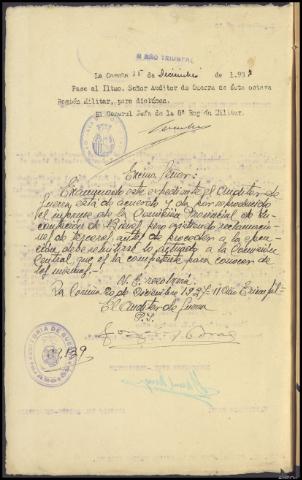 II AÑO TRIUNFAL
La Coruña 15 de Diciembre de 1.937
Pase al Iltmo. Señor Auditor de Guerra de esta octava
Región Militar, para dictámen.
El General Jefe de la 8ª Región Militar.
Excmo Señor:
Examinado este expediente el Auditor de
Guerra está de acuerdo y da por reproducido
el informe de la Comisión Provincial de In-
cautación de Bienes, pero existiendo reclamacio-
nes de terceros, antes de proceder a la
debe remitirse lo actuado a la Comisión
Central que es la competente para conocer de
las mismas.-
V. E. resolverá.
La Coruña 20 de Diciembre 1937- II Año Triunfal-
El Auditor de Guerra
AUDITORIA DE GUERRA